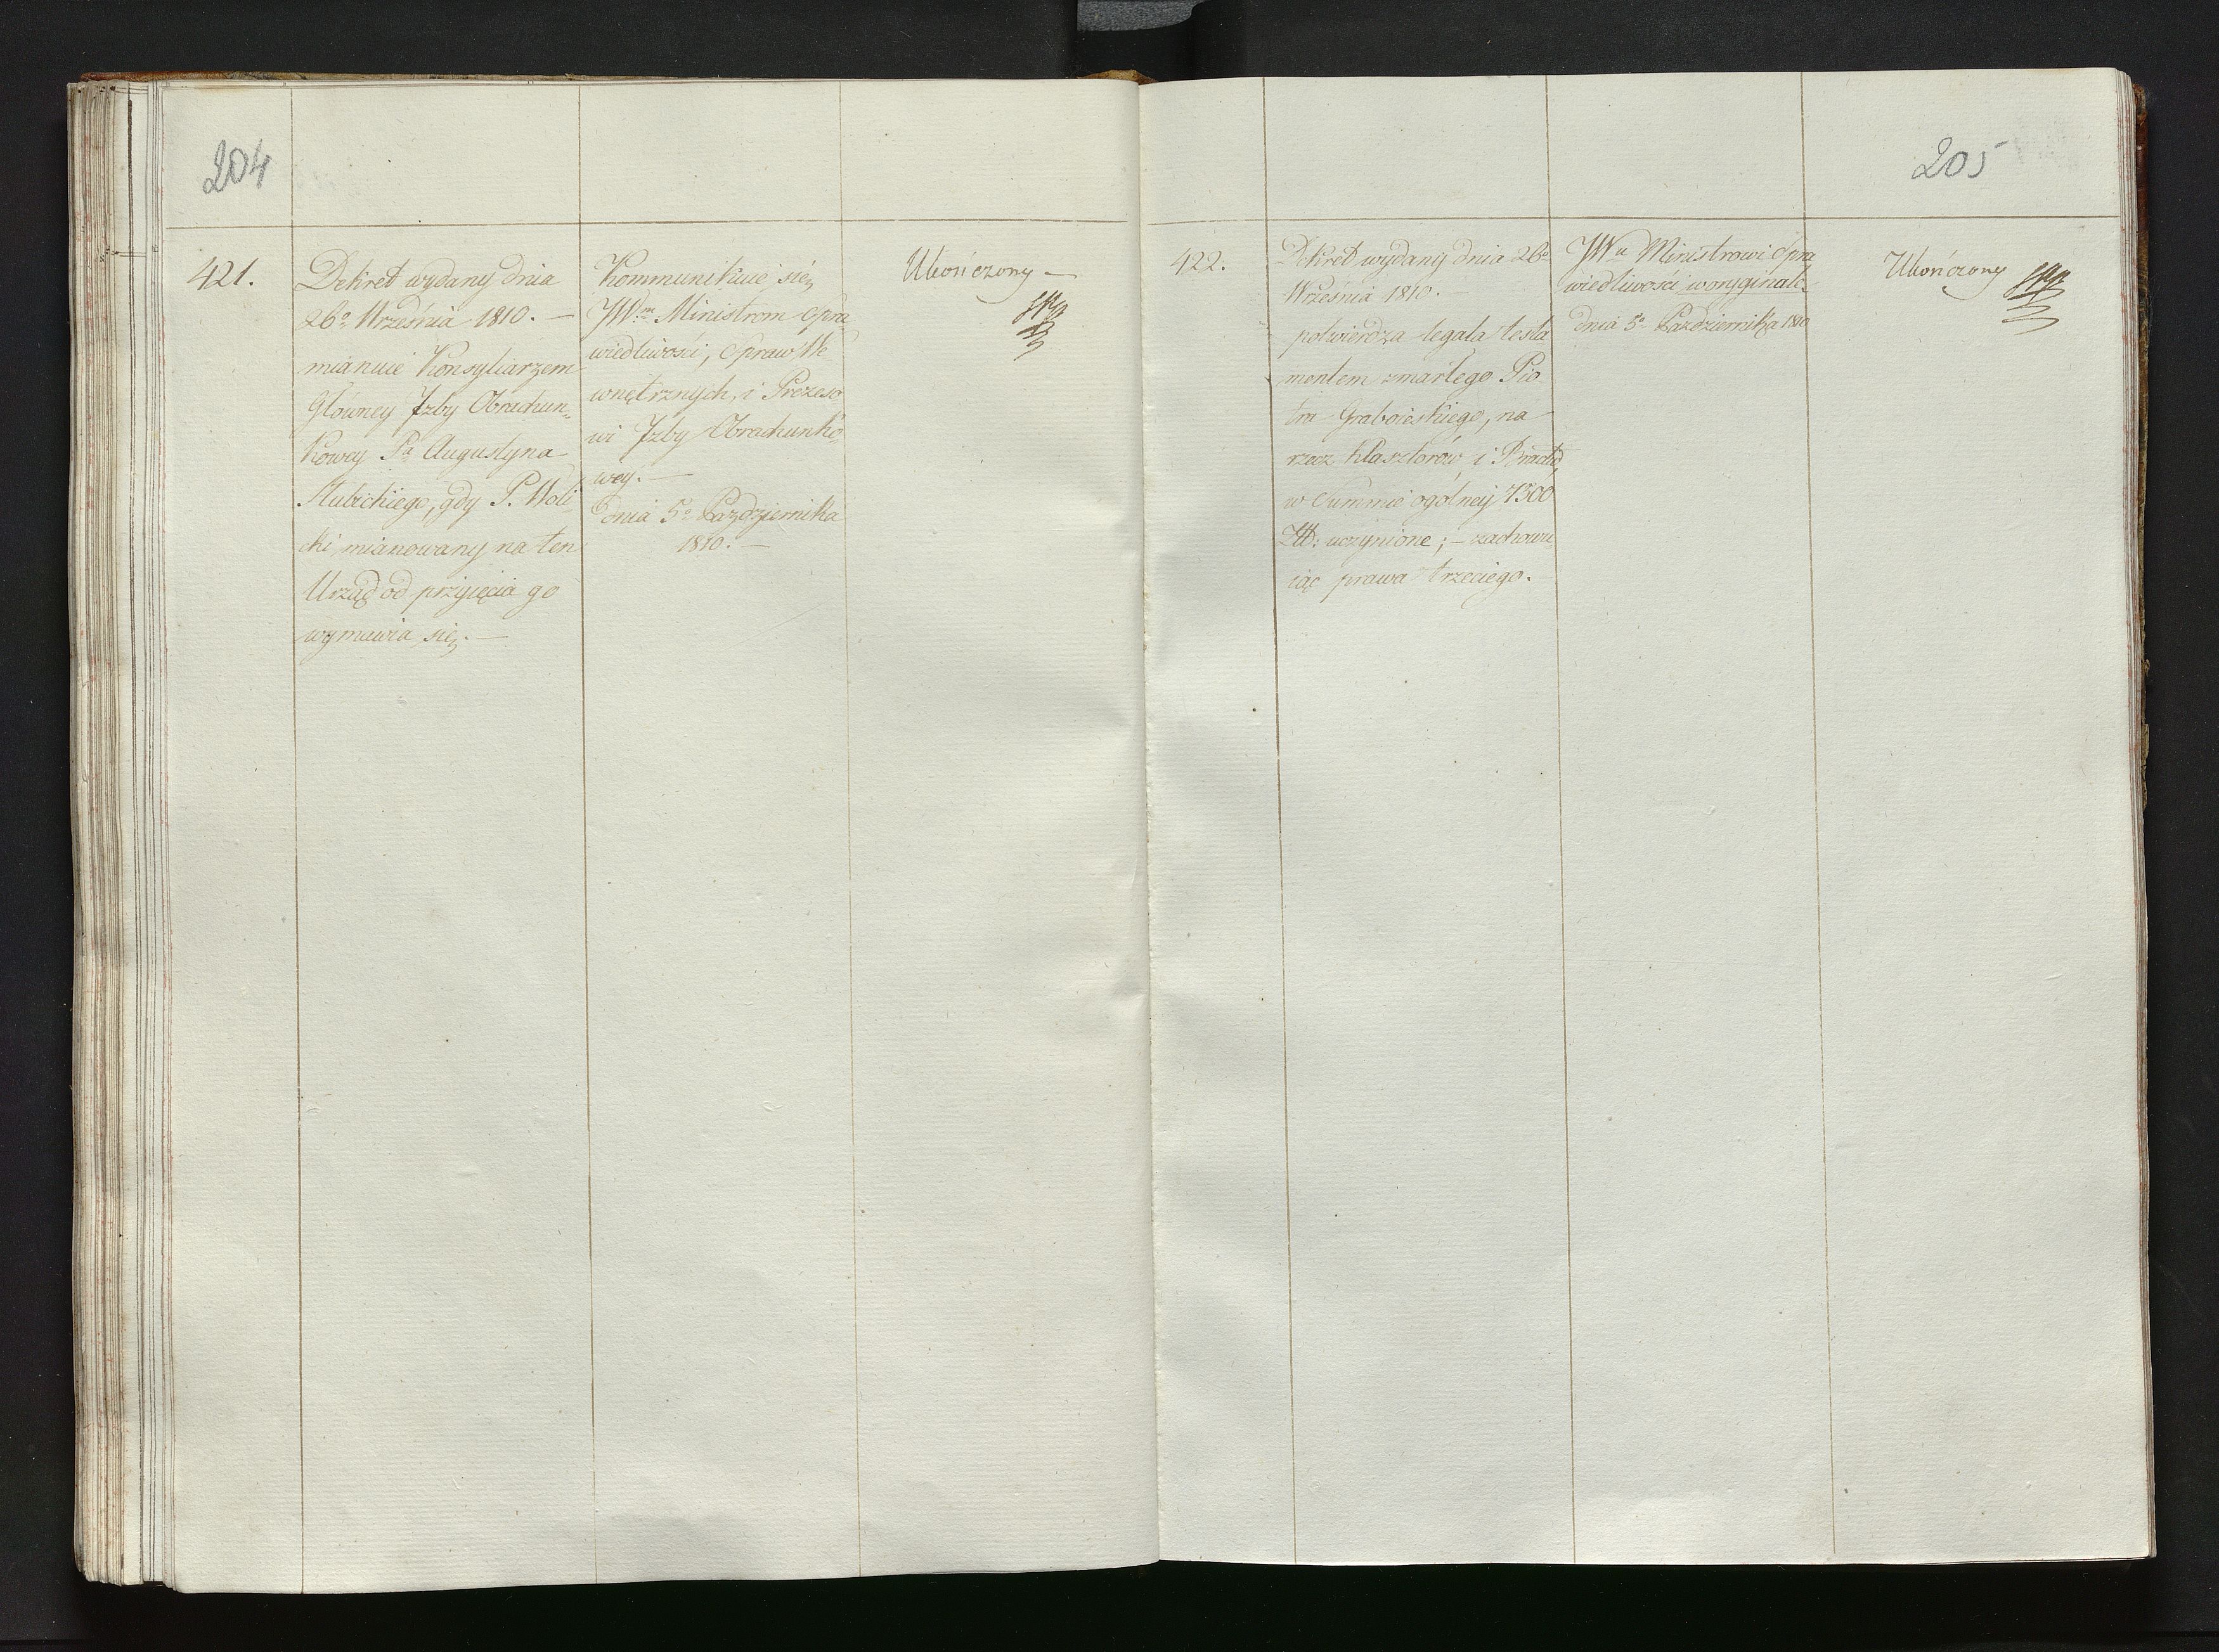 204
421.
Dekret wydany dnia
26º Września 1810. —
mianuie Konsyliarzem
Główney Jzby Obrachun„
kowey Pª Augustyna
Słubickiego, gdy P. Woli
cki mianowany na ten
Urząd od przyięcia go
wymawia się. —
Kommunikuie się
JWm Ministrom Spra
wiedliwości, Spraw We
wnętrznych, i Prezeso
wi Jzby Obrachunko
wey. —
dnia 5º Października
1810. —
Ukończony —
205
422.
Dekret wydany dnia 26º
Września 1810.
potwierdza legata testa
mentem zmarłego Pio
tra Graboieskiego, na
rzecz Klasztorów i Bractw,
w Summie ogólney 7300
Złł: uczynione; — zachowu
iąc prawa trzeciego.
JWu Ministrowi Spra
wiedliwości w oryginale
dnia 5º Października 1810
Ukończony